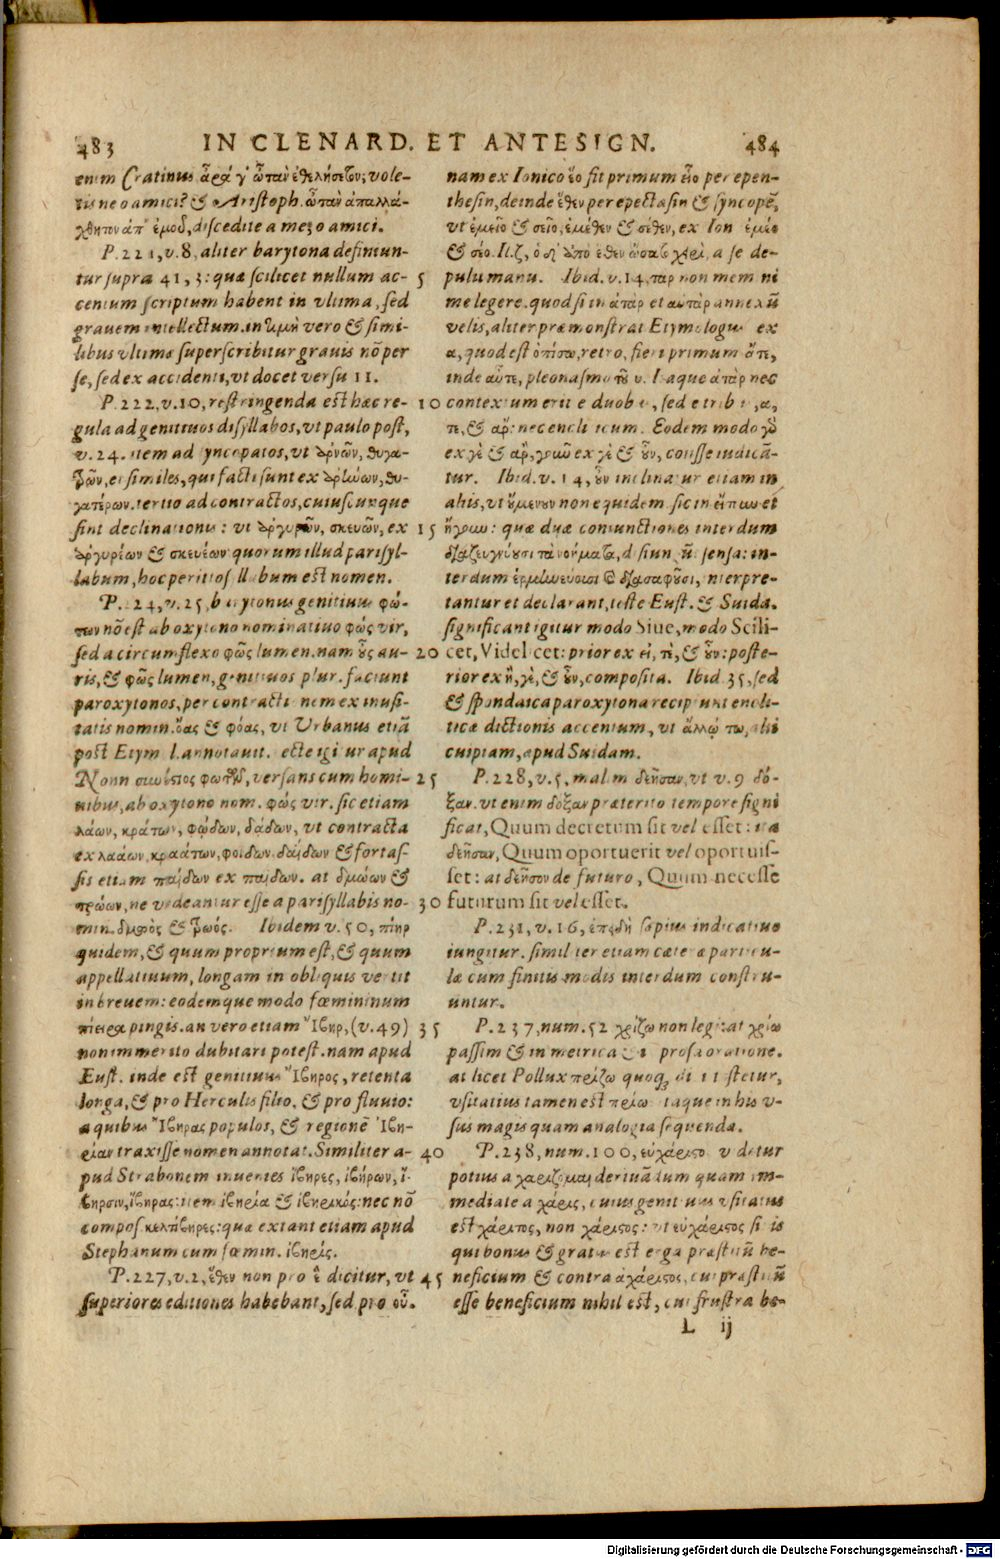 483 IN CLENARD. ET ANTESIGN. 484
enim Cratinus ἆρά γ' ὦταν ἐθελήσετον; vole-
tisne o amici? & Aristoph. ὦταν ἀπαλλά-
χθητον ἀπ' ἐμοῦ, discedite a me, o amici.
P. 221, v. 8, aliter barytona definiun-
tur supra 41, 3: quæ scilicet nullum ac-
centum scriptum habent in vltima, sed
grauem intellectum. in τιμὴ vero & simi-
libus vltimæ superscribitur grauis nō per
se, sed ex accidenti, vt docet versu 11.
P. 222, v. 10, restringenda est hæc re-
gula ad genitiuos disyllabos, vt paulo post,
v. 24. item ad syncopatos, vt ἀρνῶν, θυγα-
τρῶν, et similes, qui facti sunt ex
γατέρων. tertio ad contractos, cuiuscunque
sint declinationis: vt ἀργυρῶν, σκευῶν, ex
ἀργυρέων & σκευέων quorum illud parisyl-
labum, hoc perittosyllabum est nomen.
P. 224, v. 25, barytonus genitiuus φώ-
των nō est ab oxytono nominatiuo φὼς vir,
sed a circumflexo φῶς lumen. nam οὖς au-
ris, & φῶς lumen, genitiuos plur. faciunt
paroxytonos, per contractionem ex inusi-
tatis nomin. ὄας & φόας, vt Vrbanus etiā
post Etymol. annotauit. recte igitur apud
Nonn φωτῶν, versans cum homi-
nibus, ab oxytono nom. φὼς vir. sic etiam
λάων, κράτων, φῴδων, δᾴδων, vt contracta
ex λαάων, κραάτων, φοίδων δαΐδων & fortas-
sis etiam παίδων ex παΐδων. at δμώων &
τρώων, ne videantur esse a parisyllabis no-
min. δμωὸς & τρωός. Ibidem v. 50, πὴρ
quidem, & quum proprium est, & quum
appellatiuum, longam in obliquis vertit
in breuem: eodemque modo fœmininum
πίειρα pingis. an vero etiam Ἴβηρ, (v. 49)
non immerito dubitari potest. nam apud
Eust. inde est genitiuus Ἴβηρος, retenta
longa, & pro Herculis filio, & pro fluuio:
a quibus Ἴβηρας populos, & regionē Ἰβη-
ρίαν traxisse nomen annotat. Similiter a-
pud Strabonem inuenies ἴβηρες, ἰβήρων, ἴ-
βηρσιν, ἴβηρας: item ἰβηρία & ἰβηρικός: nec nō
compos κελτίβηρες: quæ extant etiam apud
Stephanum cum fœmin. ἰβηρίς.
P. 227, v. 2, ἕθεν non pro ἓ dicitur, vt
superiores editiones habebant, sed pro οὗ.
nam ex Ionico ἕο fit primum εἷο per epen-
thesin, deinde ἕθεν per epectasin & syncopē,
vt ἐμεῖο & σεῖο, ἐμέθεν & σέθεν, ex Ion ἐμέο
& σέο. Il. ζ, ὁ δ' ἀπὸ ἕθεν ὤσατο χειρὶ, a se de-
5 pulit manu. Ibid. v. 14, ταρ non memini
me legere. quod si in ἀτάρ et αὐτάρ annexū
velis, aliter præmonstrat Etymologus ex
α, quod est ὀπίσω, retro, fieri primum ἄτε,
inde αὖτε, pleonasmo τοῦ υ. Itaque ἀτὰρ nec
10 contextum erit e duobus, sed e tribus, α,
τε, & ἄρ: nec encliticum. Eodem modo γὰρ
ex γὲ & ἄρ, γοῦν ex γὲ & οὖν, coaluisse iudicā-
tur. Ibid. v. 14, οὖν inclinatur etiam in
aliis, vt ὔμενουν non equidem. sic in εἴτουν et
15 ἤγουν: quæ duæ coniunctiones interdum
διαζευγνύουσι τὰ νοήματα, disiungūt sensa: in-
terdum ἑρμηνεύουσι διασαφοῦσι, interpre-
tantur et declarant, teste Eust. & Suida.
significant igitur modo Siue, modo Scili-
20 cet, Videlicet: prior ex εἰ, τὲ, & οὖν: poste-
rior ex ἢ, γὲ, & οὖν, composita. Ibid. 35, sed
& spondaica paroxytona recipiunt encli-
ticæ dictionis accentum, vt ἄλλῳ τω, alii
cuipiam, apud Suidam.
25 P. 228, v. 5, malim δεῆσαν, vt v. 9 δό-
ξαν. vt enim δόξαν præterito tempore signi
ficat, Quum decretum sit vel esset: ita
δεῆσαν, Quum oportuerit vel oportuis-
set: at δεῆσον de futuro, Quum necesse
30 futurum sit vel esset.
P. 231, v. 16, ἐπειδὴ sæpius indicatiuo
iungitur. similiter etiam cæteræ particu-
læ cum finitis modis interdum constru-
untur.
35 P. 237, num. 52 χρίζω non legi: at χρίω
passim & in metrica & in prosa oratione.
at licet Pollux πρίζω quoq;
vsitatius tamen est πρίω itaque in his v-
sus magis quam analogia sequenda.
40 P. 238, num. 100, εὐχάριστος videtur
potius a χαρίζομαι deriuādum quam im-
mediate a χάρις, cuius genitiuus vsitatus
est χάριτος, non χάριστος: vt εὐχάριστος sit is
qui bonus & gratus est erga præstitū be-
45 neficium & contra ἀχάριστος, cui præstitū
esse beneficium nihil est, cui frustra be-
L ij
Digitalisierung gefördert durch die Deutsche Forschungsgemeinschaft - DFG